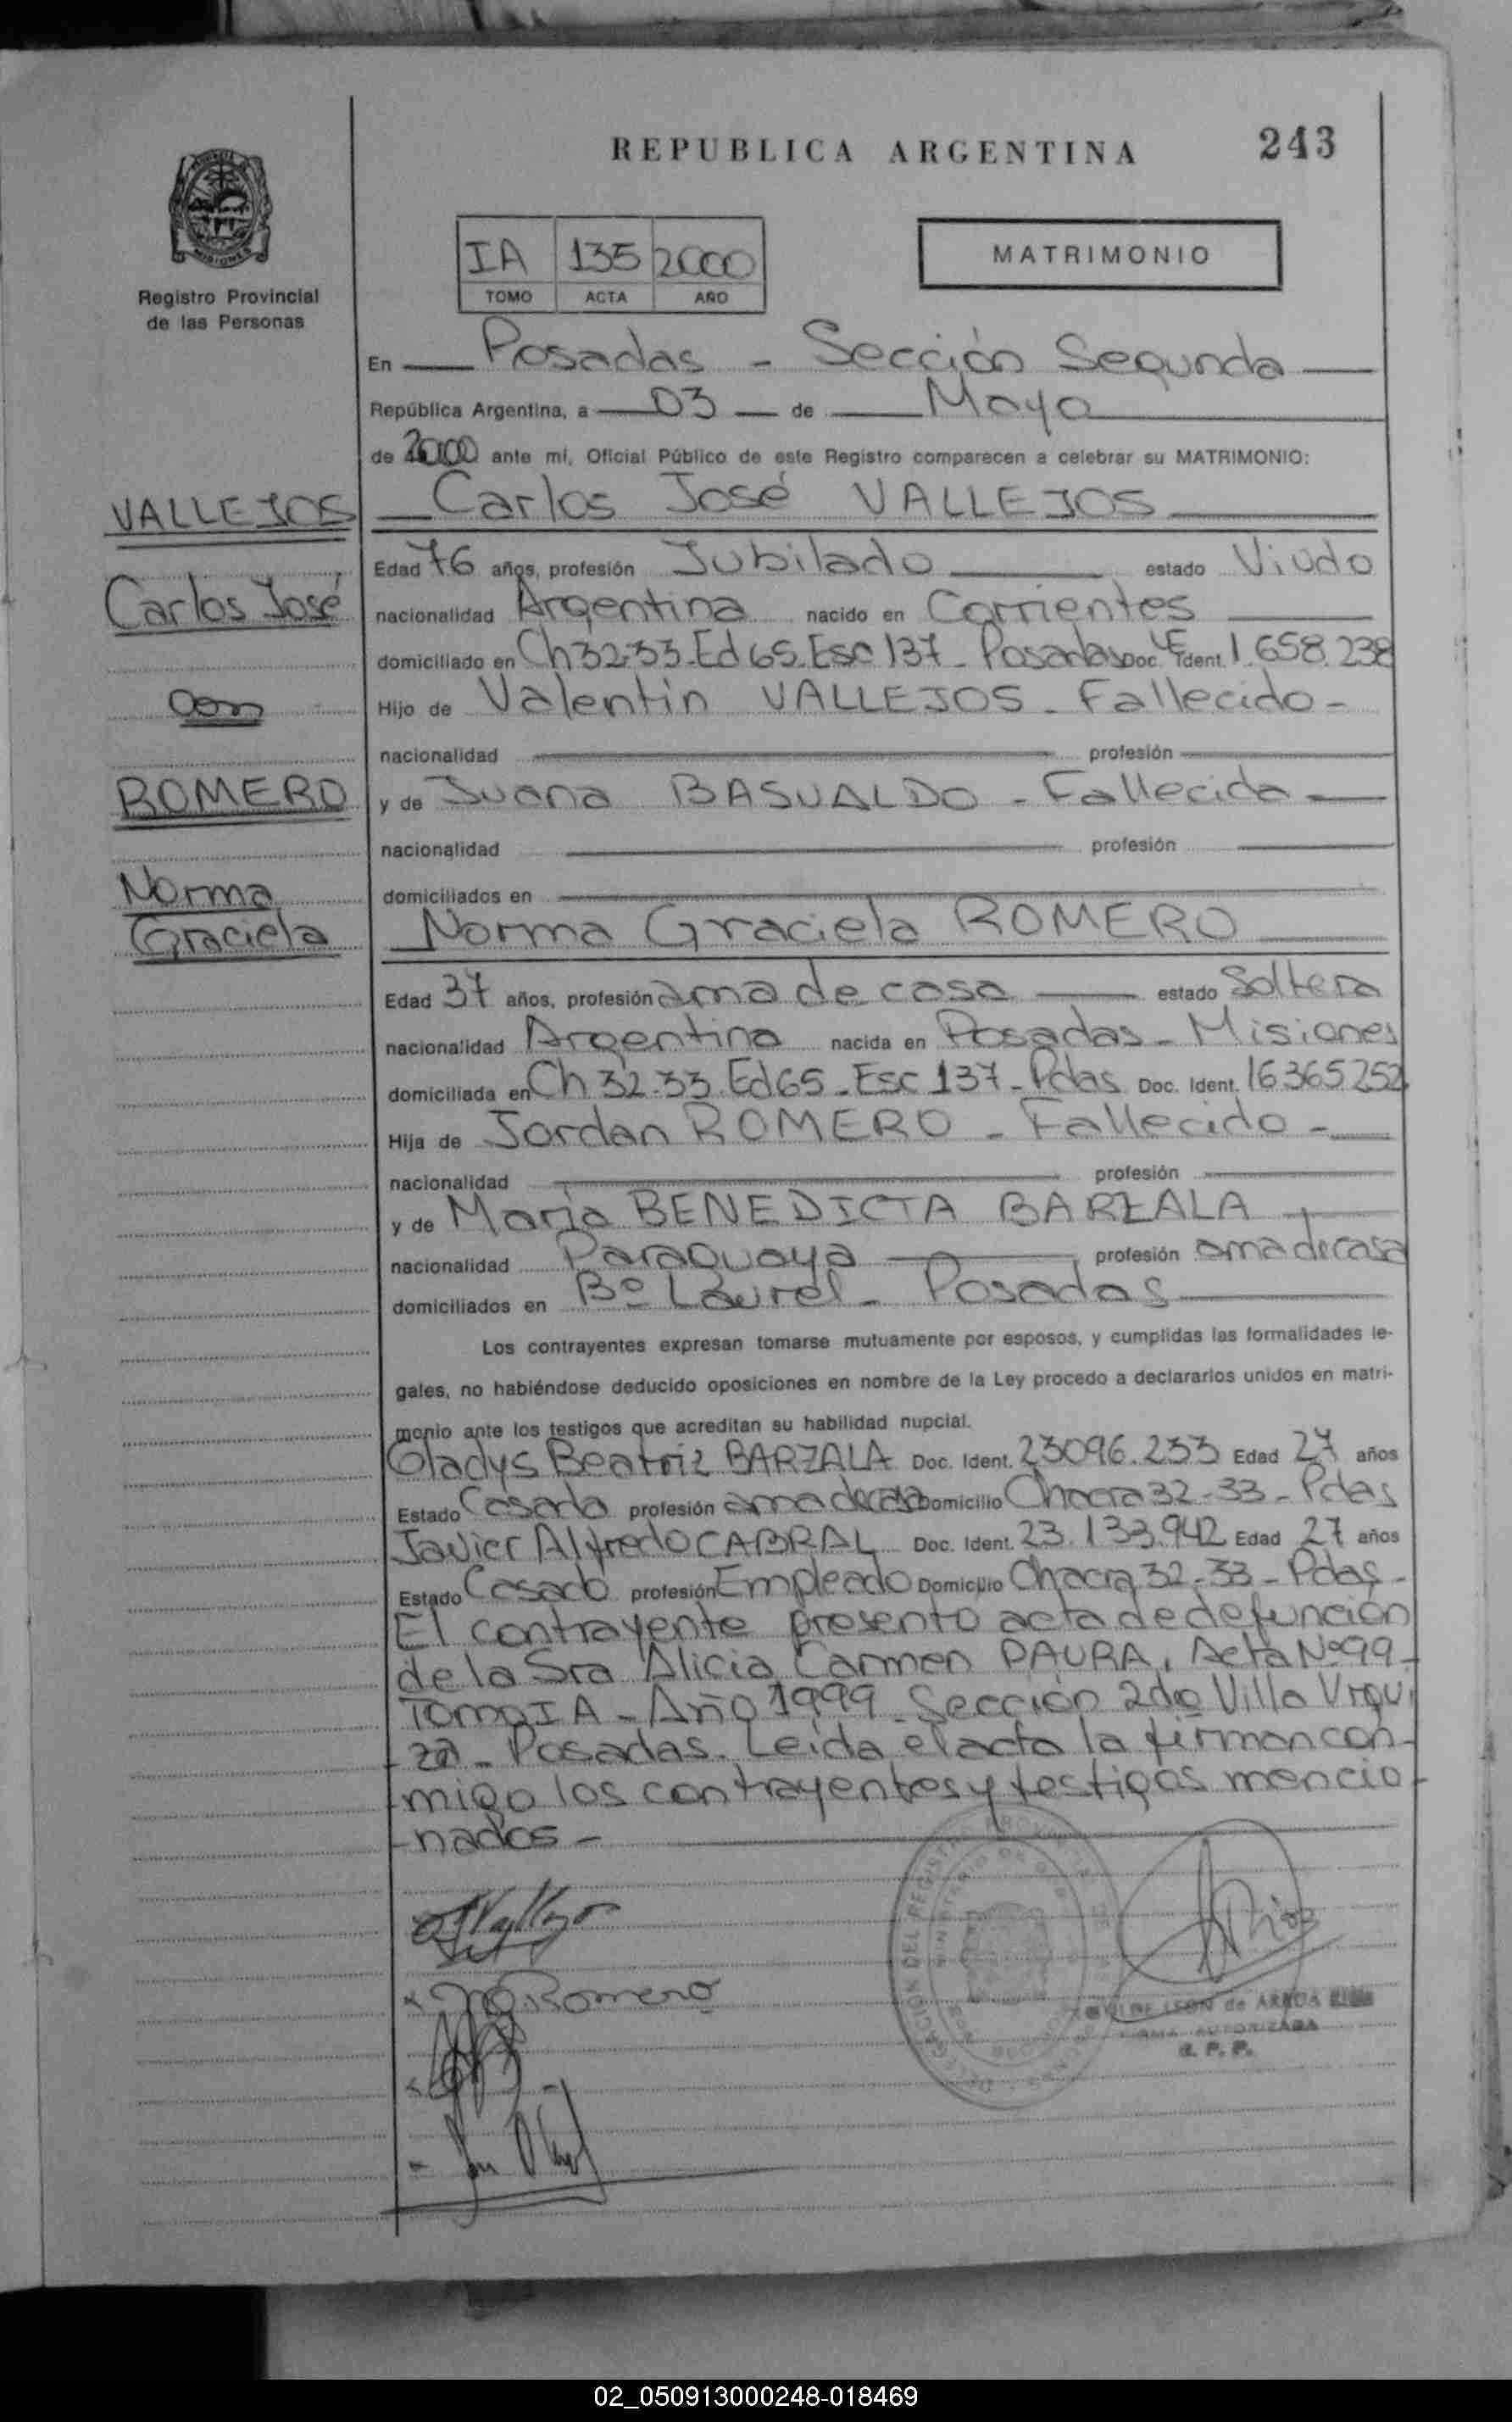 REPUBLICA ARGENTINA
243
MISIONES
Registro Provincial
de las Personas
IA 135 2000
TOMO ACTA AÑO
MATRIMONIO
En Posadas - Sección Segunda
República Argentina, a 03 de Mayo
de 2000 ante mí, Oficial Público de este Registro comparecen a celebrar su MATRIMONIO:
VALLEJOS
Carlos José
con
ROMERO
Norma
Graciela
Carlos José VALLEJOS
Edad 76 años, profesión Jubilado estado Viudo
nacionalidad Argentina nacido en Corrientes
domiciliado en Ch 32-33-Ed 65-Esc 137 - Posadas Doc. Ident. LE 1.658.238
Hijo de Valentín VALLEJOS - Fallecido -
nacionalidad profesión
y de Juana BASUALDO - Fallecida
nacionalidad profesión
domiciliados en
Norma Graciela ROMERO
Edad 37 años, profesión ama de casa estado Soltera
nacionalidad Argentina nacida en Posadas - Misiones
domiciliada en Ch 32-33 Ed 65 - Esc 137 - Pdas Doc. Ident. 16365252
Hija de Jordan ROMERO - Fallecido -
nacionalidad profesión
y de María BENEDICTA BARZALA
nacionalidad Paraguaya profesión ama de casa
domiciliados en Bº Laurel - Posadas
Los contrayentes expresan tomarse mutuamente por esposos, y cumplidas las formalidades le-
gales, no habiéndose deducido oposiciones en nombre de la Ley procedo a declararlos unidos en matri-
monio ante los testigos que acreditan su habilidad nupcial.
Gladys Beatriz BARZALA Doc. Ident. 23096.233 Edad 27 años
Estado Casada profesión ama de casa Domicilio Chacra 32-33 - Pdas
Javier Alfredo CABRAL Doc. Ident. 23.133.942 Edad 27 años
Estado Casado profesión Empleado Domicilio Chacra 32-33 - Pdas -
El contrayente presento acta de defunción
de la Sra Alicia Carmen PAURA, Acta Nº 99 -
Tomo IA - Año 1999 - Sección 2da Villa Urqui
za - Posadas. Leída el acta la firman con-
migo los contrayentes y testigos mencio-
nados -
Romero
Rios
LEON de ARRUA
FIRMA AUTORIZADA
R. P. P.
02_050913000248-018469